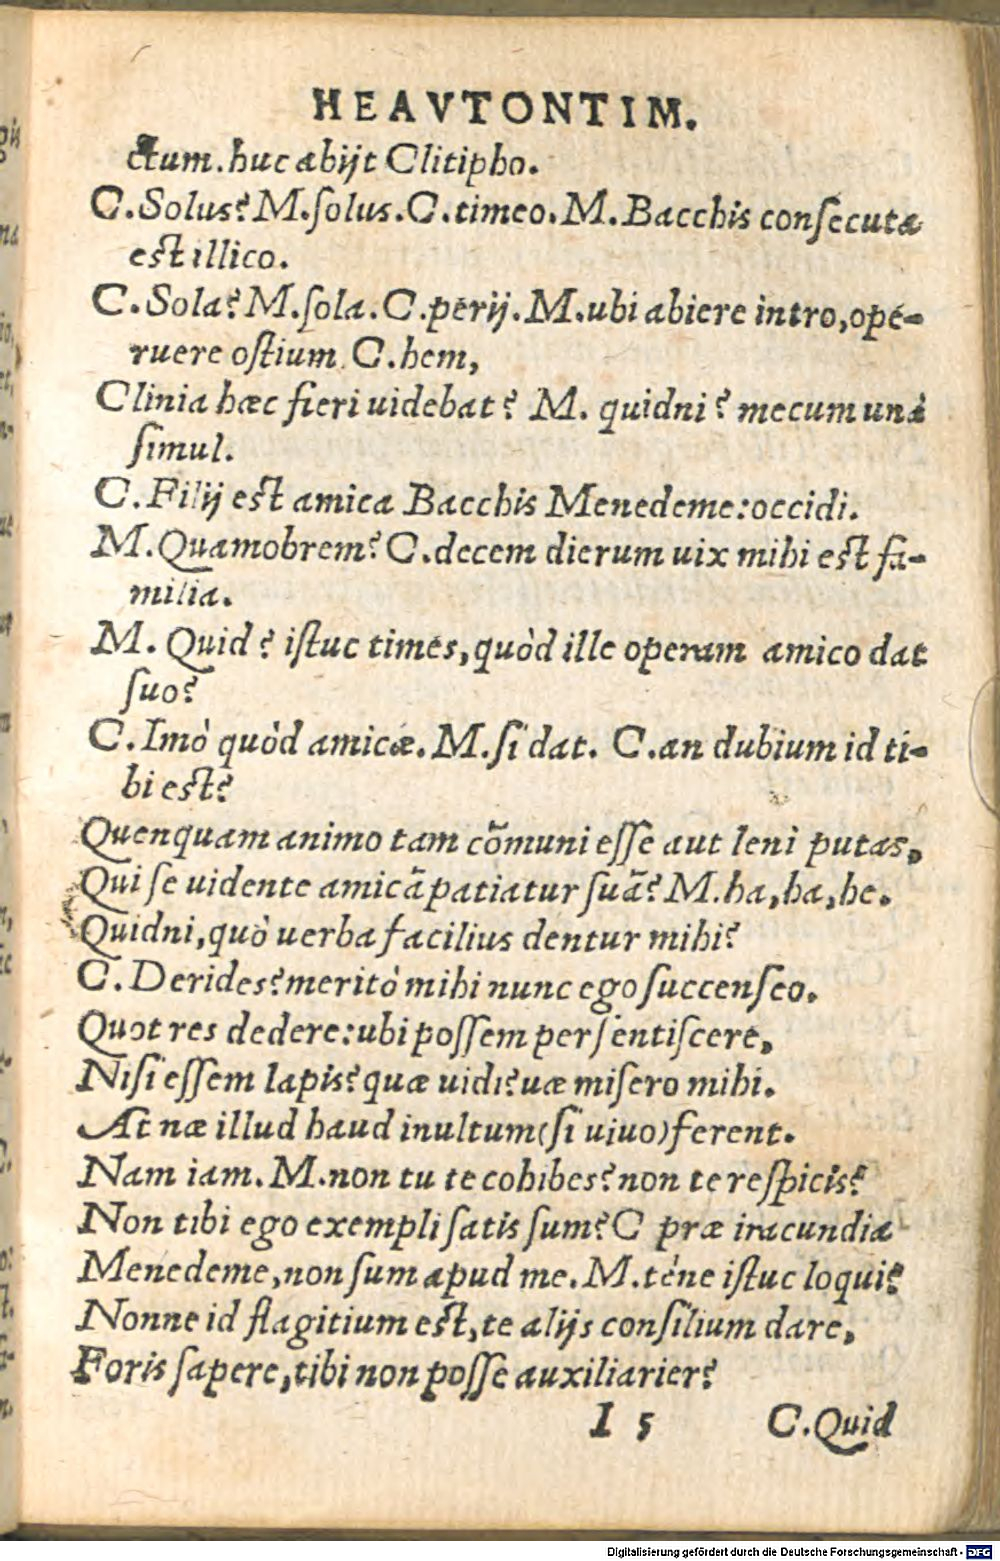 HEAVTONTIM.
ctum. huc abijt Clitipho.
C. Solus? M. ſolus. C. timeo. M. Bacchis conſecuta
eſt illico.
C. Sola? M. ſola. C. perij. M. ubi abiere intro, ope-
ruere oſtium. C. hem,
Clinia hæc fieri uidebat? M. quidni? mecum unà
ſimul.
C. Filij eſt amica Bacchis Menedeme: occidi.
M. Quamobrem? C. decem dierum uix mihi eſt fa-
milia.
M. Quid? iſtuc times, quòd ille operam amico dat
ſuo?
C. Imò quòd amicæ. M. ſi dat. C. an dubium id ti-
bi eſt?
Quenquam animo tam cõmuni eſſe aut leni putas,
Qui ſe uidente amicã patiatur ſuã? M. ha, ha, he.
Quidni, quò uerba facilius dentur mihi?
C. Derides? meritò mihi nunc ego ſuccenſeo.
Quot res dedere: ubi poſſem perſentiſcere,
Niſi eſſem lapis? quæ uidi? uæ miſero mihi.
At næ illud haud inultum (ſi uiuo) ferent.
Nam iam. M. non tu te cohibes? non te reſpicis?
Non tibi ego exempli ſatis ſum? C præ iracundia
Menedeme, non ſum apud me. M. téne iſtuc loqui?
Nonne id flagitium eſt, te alijs conſilium dare,
Foris ſapere, tibi non poſſe auxiliarier?
I 5 C. Quid
Digitalisierung gefördert durch die Deutsche Forschungsgemeinschaft - DFG